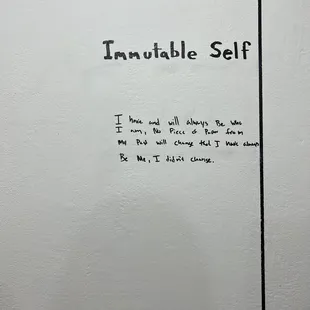 Immutable Self
I have and will always Be who
I am, No Piece of Paper from
My Past will change that I have always
Be Me, I didn't change.